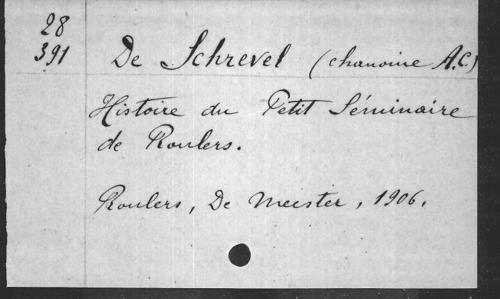 28
391
De Schrevel (chanoine A.C.)
Histoire du Petit Séminaire
de Roulers.
Roulers, De Meester, 1906.